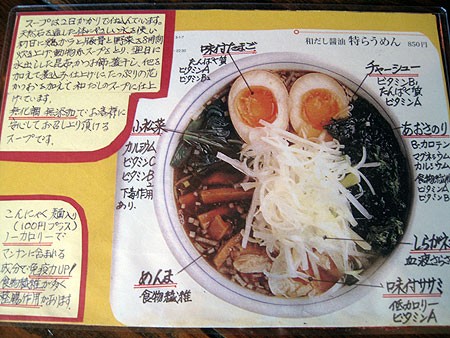 スープは2日かけて仕込んでいます。
天然石を通した体にやさしい水を使い
初日に鶏がらと豚骨と野菜を8時間
炊き上げ動物系スープをとり、翌日に
水出しした昆布かつお節煮干し、他を
加えて煮込み仕上げにたっぷりの花
かつおを加えて和だしのスープに仕上
げています。
無化調 無添加で、お客様に
安心してお召し上り頂ける
スープです。
和だし醤油 特らうめん 850円
味付たまご
たんぱく質
ビタミンA
ビタミンB₂
チャーシュー
ビタミンB₁
たんぱく質
ビタミンA
小松菜
カルシウム
ビタミンC
ビタミンB
ビタミンE
下毒作用
あり.
あおさのり
B-カロテン
マグネシウム
カルシウム
食物繊維
ビタミンA
ビタミンB
こんにゃく麺入り
(100円プラス)
ノーカロリーで
マンナンに含まれる
成分で免疫力UP!
食物繊維が多く
整腸作用があります!
めんま
食物繊維
しらがネ
血液さらさら
味付ササミ
低カロリー
ビタミンA